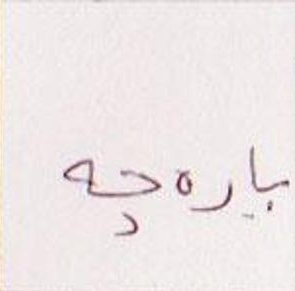 پارەچە